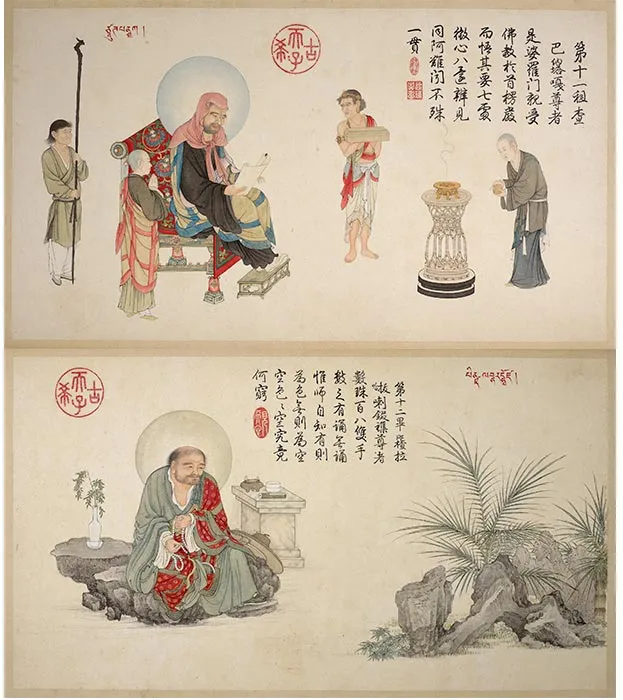 古希天子
第十一租查
巴嘎尊者
是婆羅門親受
佛教於首楞嚴
而悟其要七處
徵心八還辨見
同阿難聞不殊
一貫
古希天子
第十二畢拉
喇鍐雜尊者
數珠百八雙手
數之有誦無誦
惟師自知有則
為色無則為空
空色色空究竟
何窮